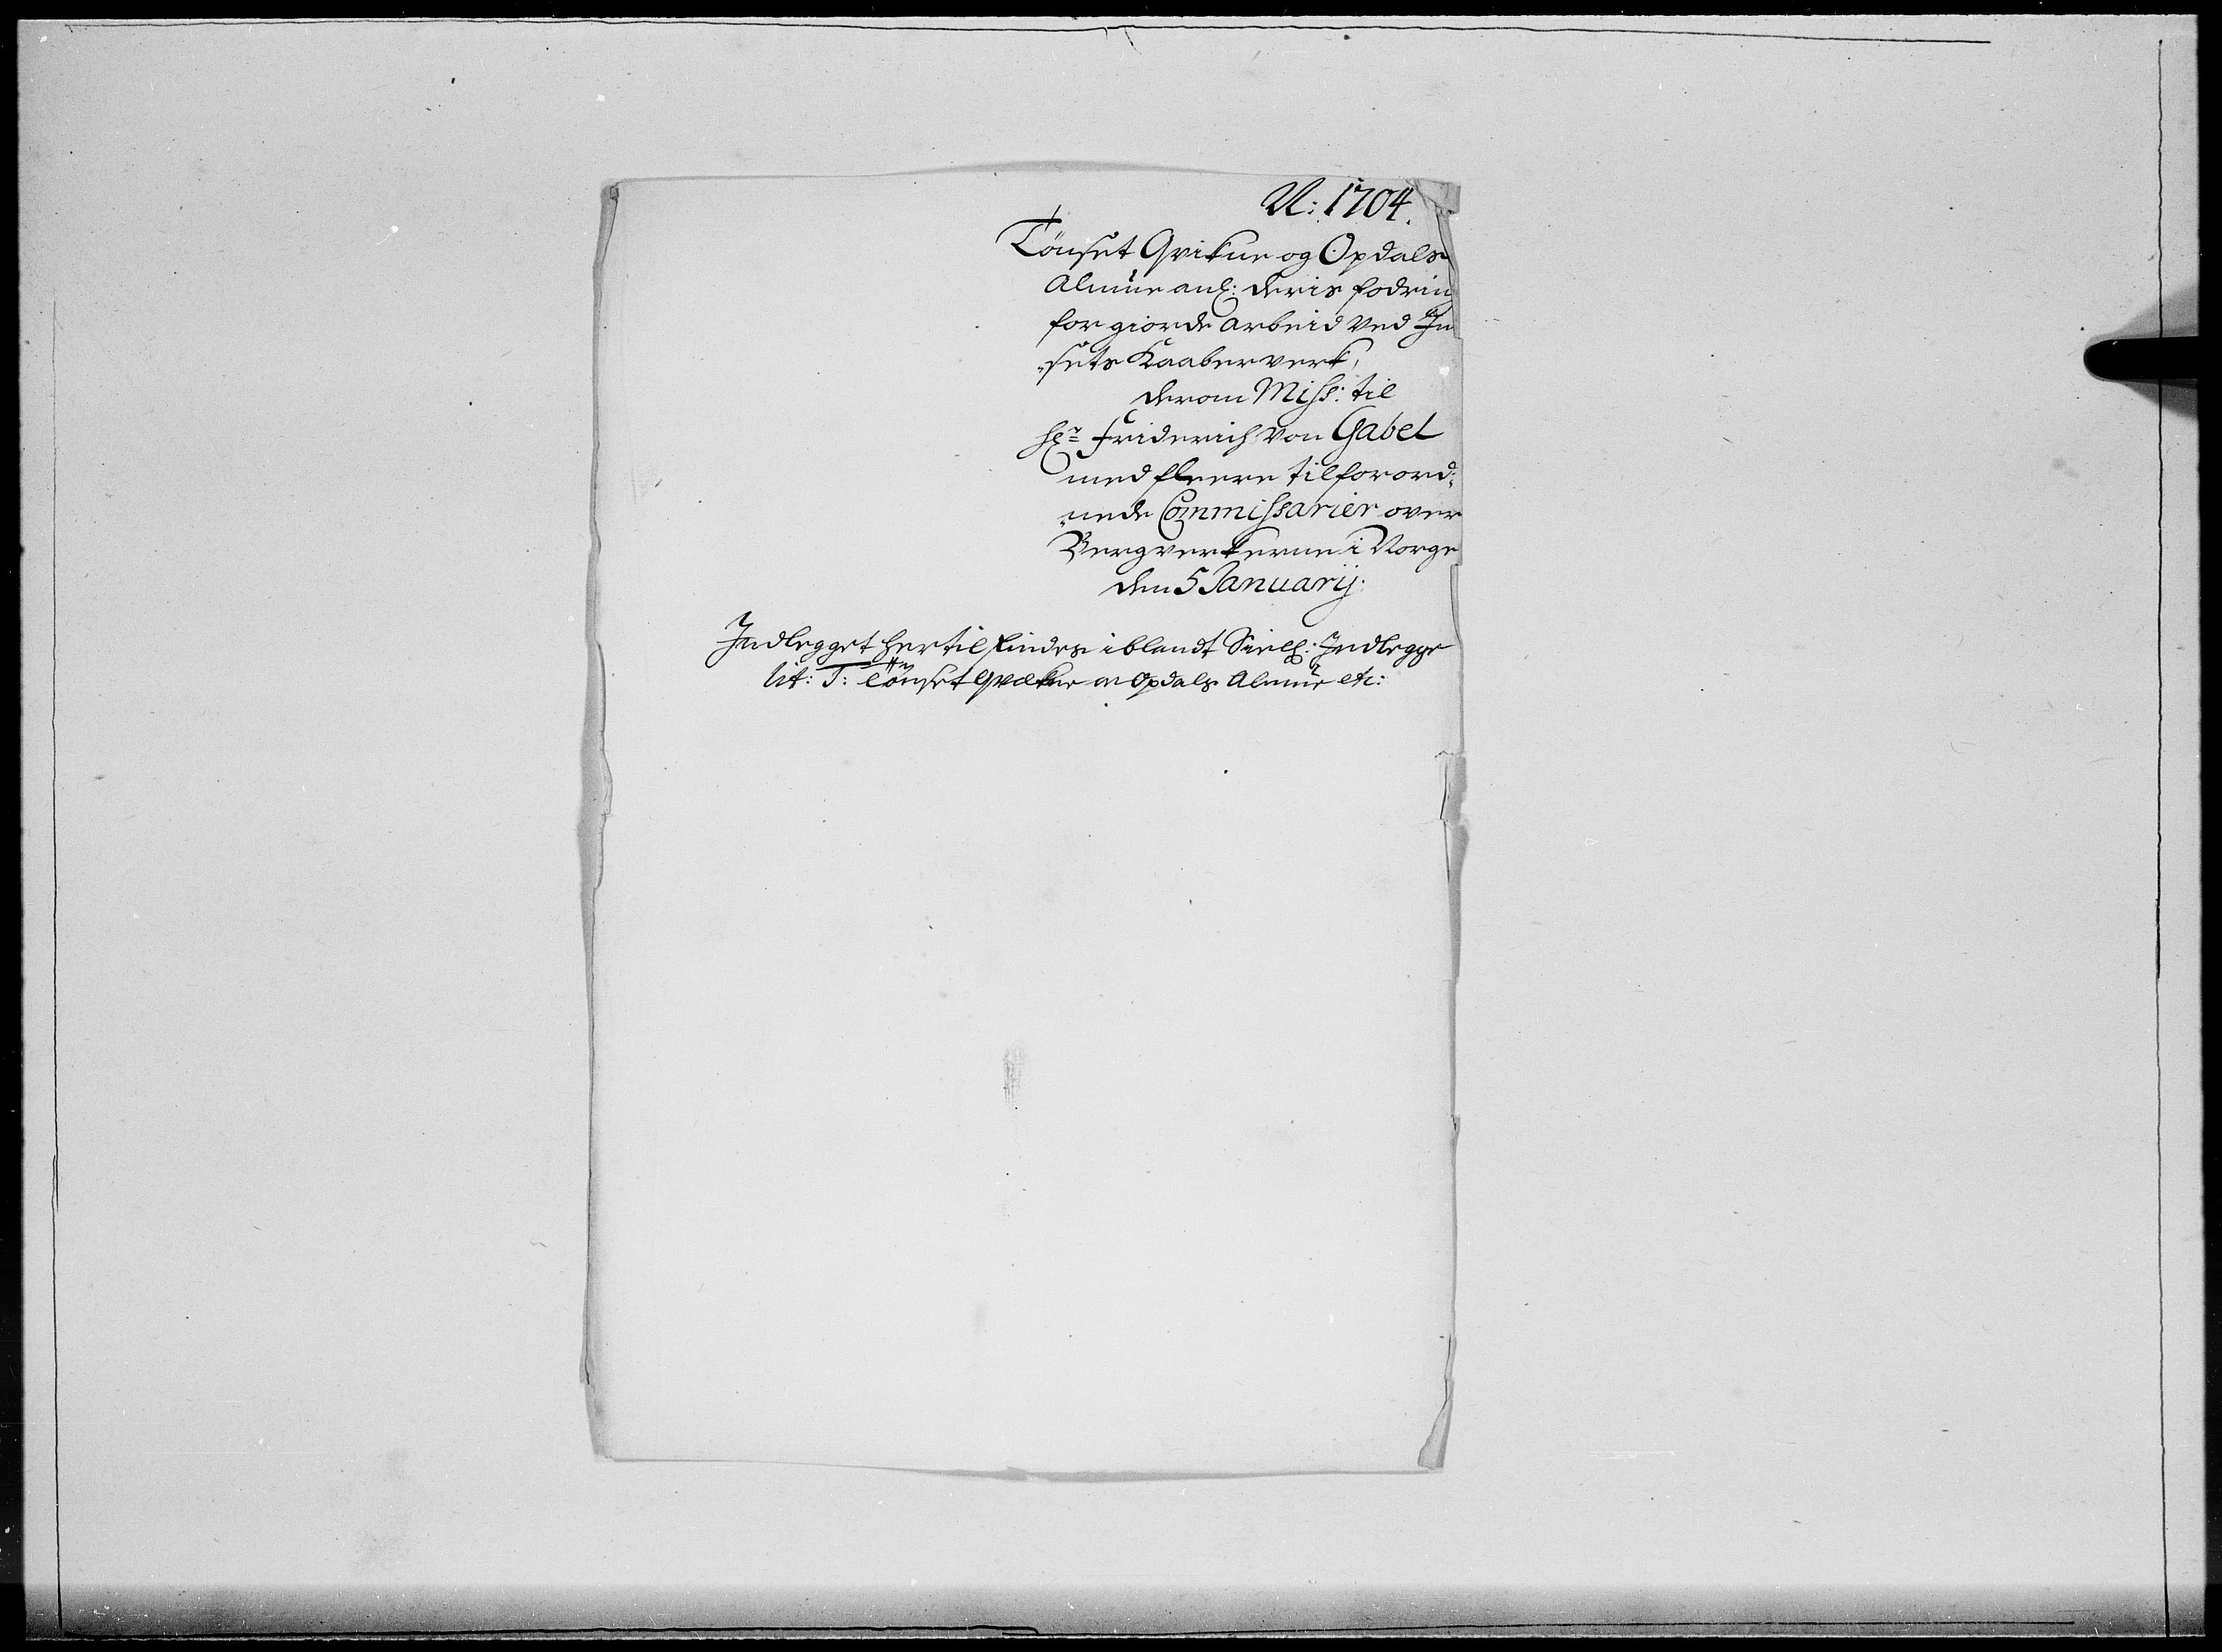 N: 1704.
Tönset Qvikne og Opdals
Almue anl: deris fodring
for giorde arbeid ved In
-sets Kaaberverk,
derom Miss: til
Hr Friderich von Gabel
med fleere tilforord-
-nede Commissarier over
Bergverkerne i Norge
den 5 Januarij.
Indlegget hertil findes iblandt Siell: Indlegge
Lit: T: Tönset Qvikne og Opdals Almue etc: